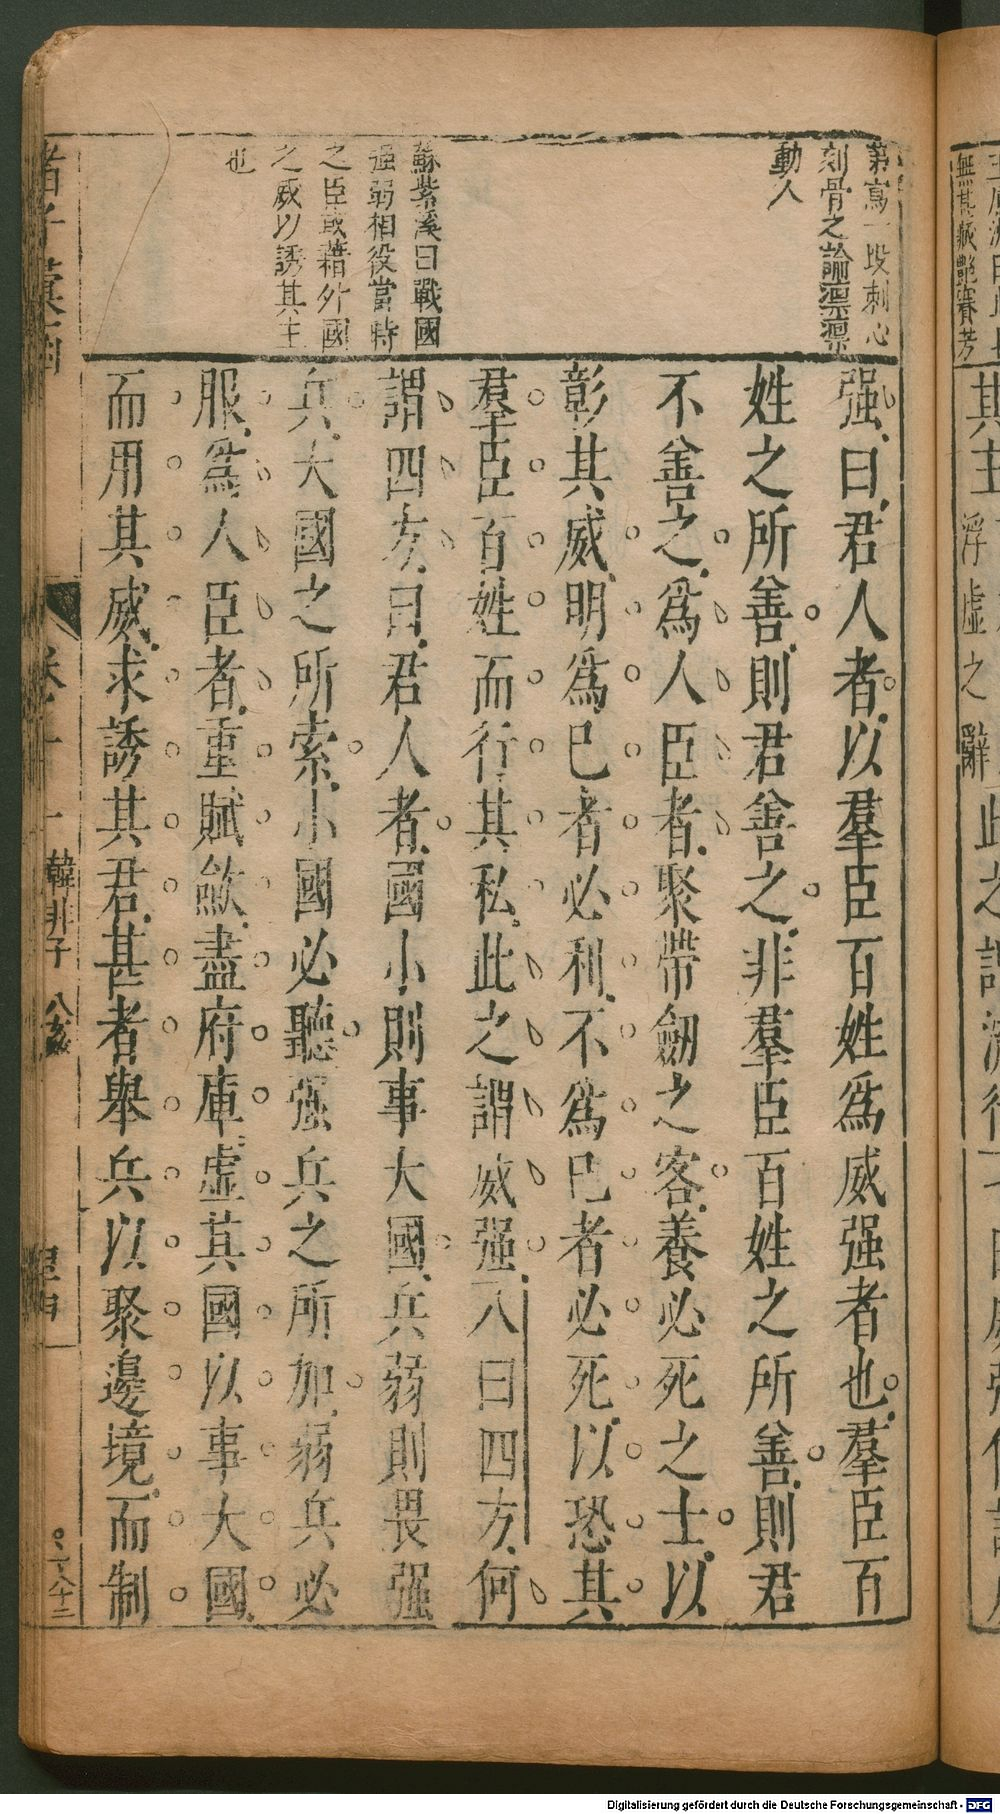 第寫一段刺心
刻骨之論凛凛
動人
蘇紫溪曰戰國
强弱相役當時
之臣或藉外國
之威以誘其主
也
强曰君人者以羣臣百姓爲威强者也羣臣百
姓之所善則君善之非羣臣百姓之所善則君
不善之爲人臣者聚帶劒之客養必死之士以
彰其威明爲已者必利不爲已者必死以恐其
羣臣百姓而行其私此之謂威强八曰四方何
謂四方曰君人者國小則事大國兵弱則畏强
兵大國之所索小國必聽强兵之所加弱兵必
服爲人臣者重賦斂盡府庫虛其國以事大國
而用其威求誘其君甚者舉兵以聚邊境而制
韓非子 八姦
其主
浮虛之辭
無其
Digitalisierung gefördert durch die Deutsche Forschungsgemeinschaft - DFG